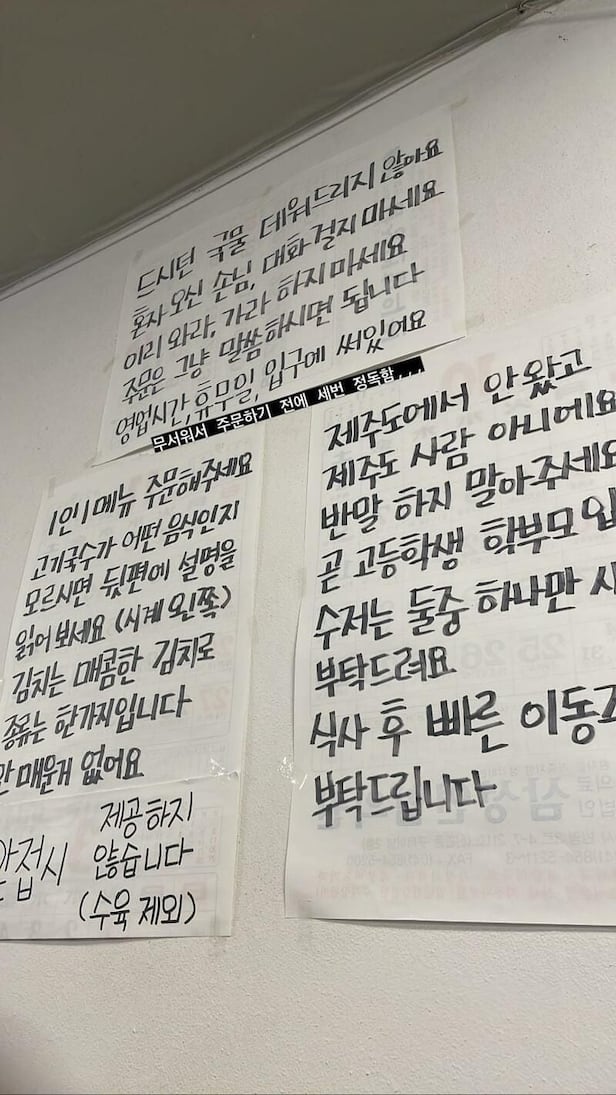 드시던 국물 데워드리지 않아요
혼자 오신 손님, 대화 걸지 마세요
이리 와라, 가라 하지마세요
주문은 그냥 말씀하시면 됩니다
영업시간, 휴무일, 입구에 써있어요
무서워서 주문하기 전에 세번 정독함...
1인 1메뉴 주문해주세요
고기국수가 어떤 음식인지
모르시면 뒷편에 설명을
읽어 보세요 (시계 왼쪽)
김치는 매콤한 김치로
종류는 한가지입니다
안 매운게 없어요
앞접시 제공하지
않습니다
(수육 제외)
제주도에서 안 왔고
제주도 사람 아니에요
반말 하지 말아주세요
곧 고등학생 학부모
수저는 둘중 하나만
부탁드려요
식사 후 빠른 이동
부탁드립니다